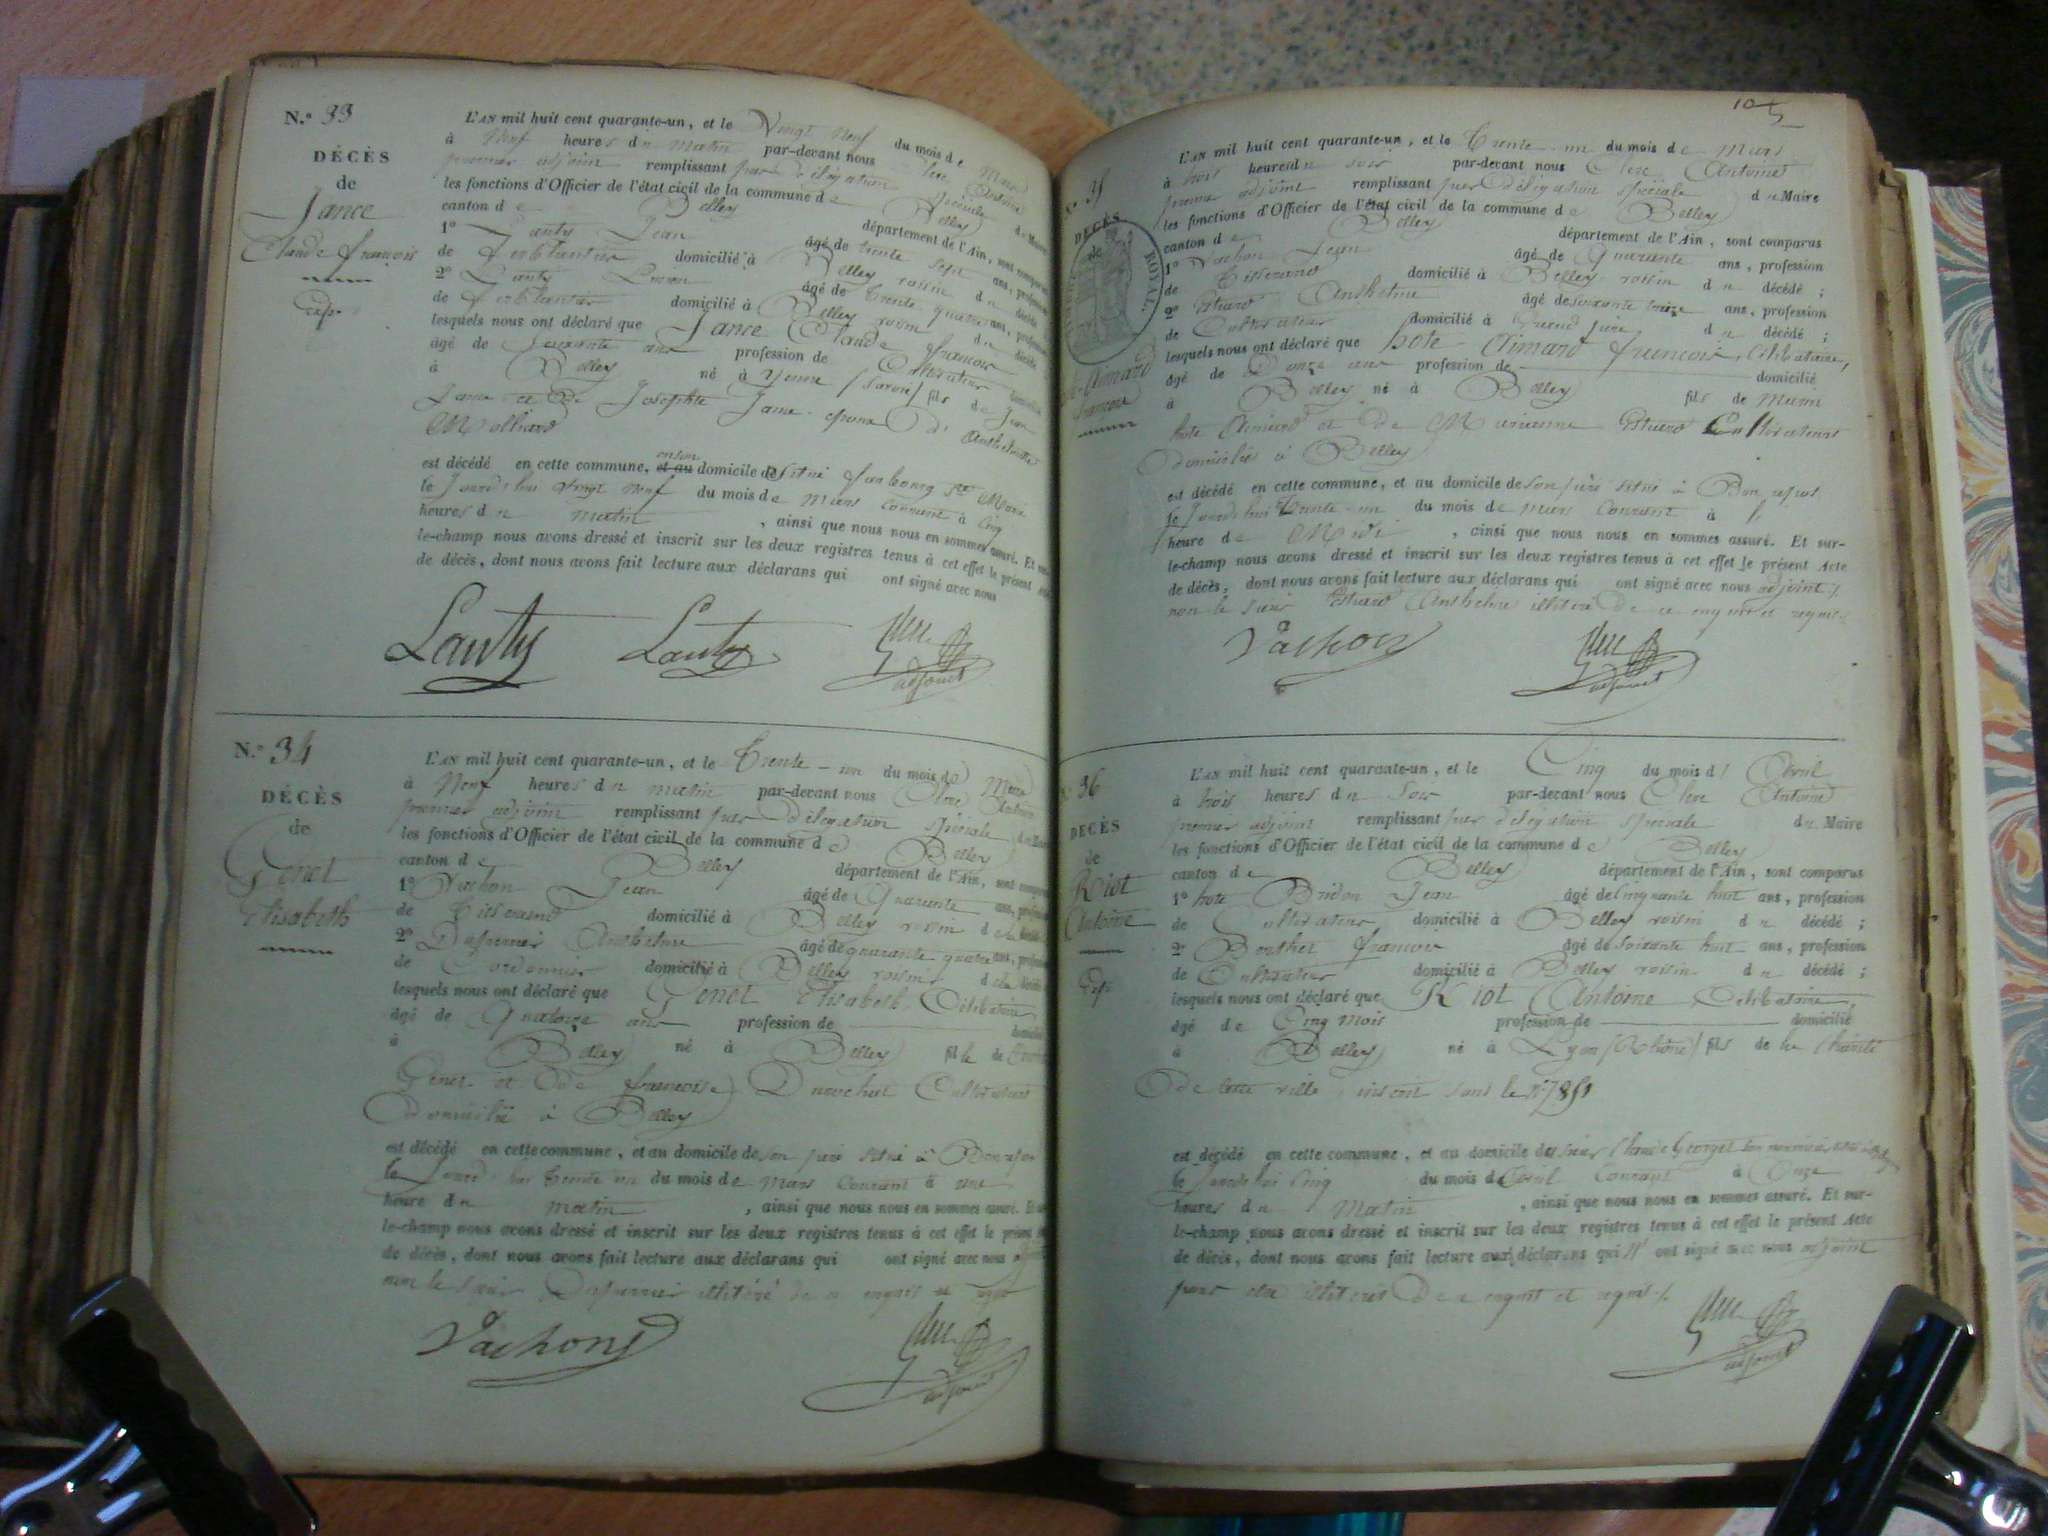 N.º 33
DÉCÈS
de
Jance
Claude françois
L'AN mil huit cent quarante-un, et le Vingt Neuf du mois de Mars
à Neuf heures du matin par-devant nous Clerc Antoine
premier adjoint remplissant par délégation spéciale du Maire
les fonctions d'Officier de l'état civil de la commune de Belley
canton de Belley département de l'Ain, sont comparus
1º Lauty Jean âgé de trente sept ans, profession
de ferblantier domicilié à Belley voisin du décédé
2º Lauty âgé de trente quatre ans, profession
de ferblantier domicilié à Belley voisin du décédé
lesquels nous ont déclaré que Jance Claude françois
âgé de ans profession de Cultivateur
à Belley né à Yenne (Savoie) fils de Jean
Jance et de Josephte Jame époux d'Anthelmette
Molliard
est décédé en cette commune, et au domicile de situé faubourg St
le Jourd'hui vingt neuf du mois de Mars courant à Cinq
heures du matin, ainsi que nous nous en sommes assuré. Et
le-champ nous avons dressé et inscrit sur les deux registres tenus à cet effet le présent
de décès, dont nous avons fait lecture aux déclarans qui ont signé avec nous
Lauty Lauty Clerc
adjoint
N.º 34
DÉCÈS
de
Genet
Elisabeth
L'AN mil huit cent quarante-un, et le Trente-un du mois de Mars
à Neuf heures du matin par-devant nous Clerc Antoine
premier adjoint remplissant par délégation spéciale du
les fonctions d'Officier de l'état civil de la commune de Belley
canton de Belley département de l'Ain, sont comparus
1º Vachon Jean âgé de Quarante ans, profession
de Tisserand domicilié à Belley voisin de la
2º Duperrier Anthelme âgé de quarante quatre ans, profession
de Cordonnier domicilié à Belley voisin de la décédée
lesquels nous ont déclaré que Genet Elisabeth, Célibataire
âgé de Quatorze ans profession de
à Belley né à Belley fille de
Genet et de françoise Durochat Cultivateurs
domicilié à Belley
est décédé en cette commune, et au domicile de son père situé à Bon repos
le Jourd'hui trente un du mois de Mars courant à une
heure du matin, ainsi que nous nous en sommes assuré. Et
le-champ nous avons dressé et inscrit sur les deux registres tenus à cet effet le présent
de décès, dont nous avons fait lecture aux déclarans qui ont signé avec nous
non le Sieur Duperrier illitéré de ce enquis et
Vachon Clerc
adjoint
105
35
DÉCÈS
de
ROYAL
Aimard
françois
L'AN mil huit cent quarante-un, et le Trente-un du mois de Mars
à trois heures du soir par-devant nous Clerc Antoine
premier adjoint remplissant par délégation spéciale du Maire
les fonctions d'Officier de l'état civil de la commune de Belley
canton de Belley département de l'Ain, sont comparus
1º Vachon Jean âgé de Quarante ans, profession
de Tisserand domicilié à Belley voisin du décédé;
2º Anthelme âgé de soixante treize ans, profession
de Cultivateur domicilié à du décédé;
lesquels nous ont déclaré que hote-Aimard françois, Célibataire,
âgé de Donze ans profession de domicilié
à Belley né à Belley fils de
hote Aimard et de Marianne Cultivateurs
domiciliés à Belley
est décédé en cette commune, et au domicile de son père situé à Bon repos
le Jourd'hui Trente-un du mois de Mars Courant à
heure de Midi, ainsi que nous nous en sommes assuré. Et sur-
le-champ nous avons dressé et inscrit sur les deux registres tenus à cet effet le présent Acte
de décès, dont nous avons fait lecture aux déclarans qui ont signé avec nous adjoint
non le Sieur Anthelme illitéré de ce enquis et requis.
Vachon Clerc
adjoint
36
DÉCÈS
de
Riot
Antoine
L'AN mil huit cent quarante-un, et le Cinq du mois d'Avril
à trois heures du Soir par-devant nous Clerc Antoine
premier adjoint remplissant par délégation spéciale du Maire
les fonctions d'Officier de l'état civil de la commune de Belley
canton de Belley département de l'Ain, sont comparus
1º hote Bridon Jean âgé de Cinquante huit ans, profession
de Cultivateur domicilié à Belley voisin du décédé;
2º Berthet françois âgé de Soixante huit ans, profession
de Cultivateur domicilié à Belley voisin du décédé;
lesquels nous ont déclaré que Riot Antoine, Célibataire
âgé de Cinq Mois profession de domicilié
à Belley né à Lyon (Rhône) fils de la Charité
de cette ville, inscrit sous le nº
est décédé en cette commune, et au domicile du sieur Claude Georget
le Jourd'hui Cinq du mois d'Avril Courant à Onze
heures du Matin, ainsi que nous nous en sommes assuré. Et sur-
le-champ nous avons dressé et inscrit sur les deux registres tenus à cet effet le présent Acte
de décès, dont nous avons fait lecture aux déclarans qui n' ont signé avec nous adjoint
pour être illiterés de ce enquis et requis.
Clerc
adjoint